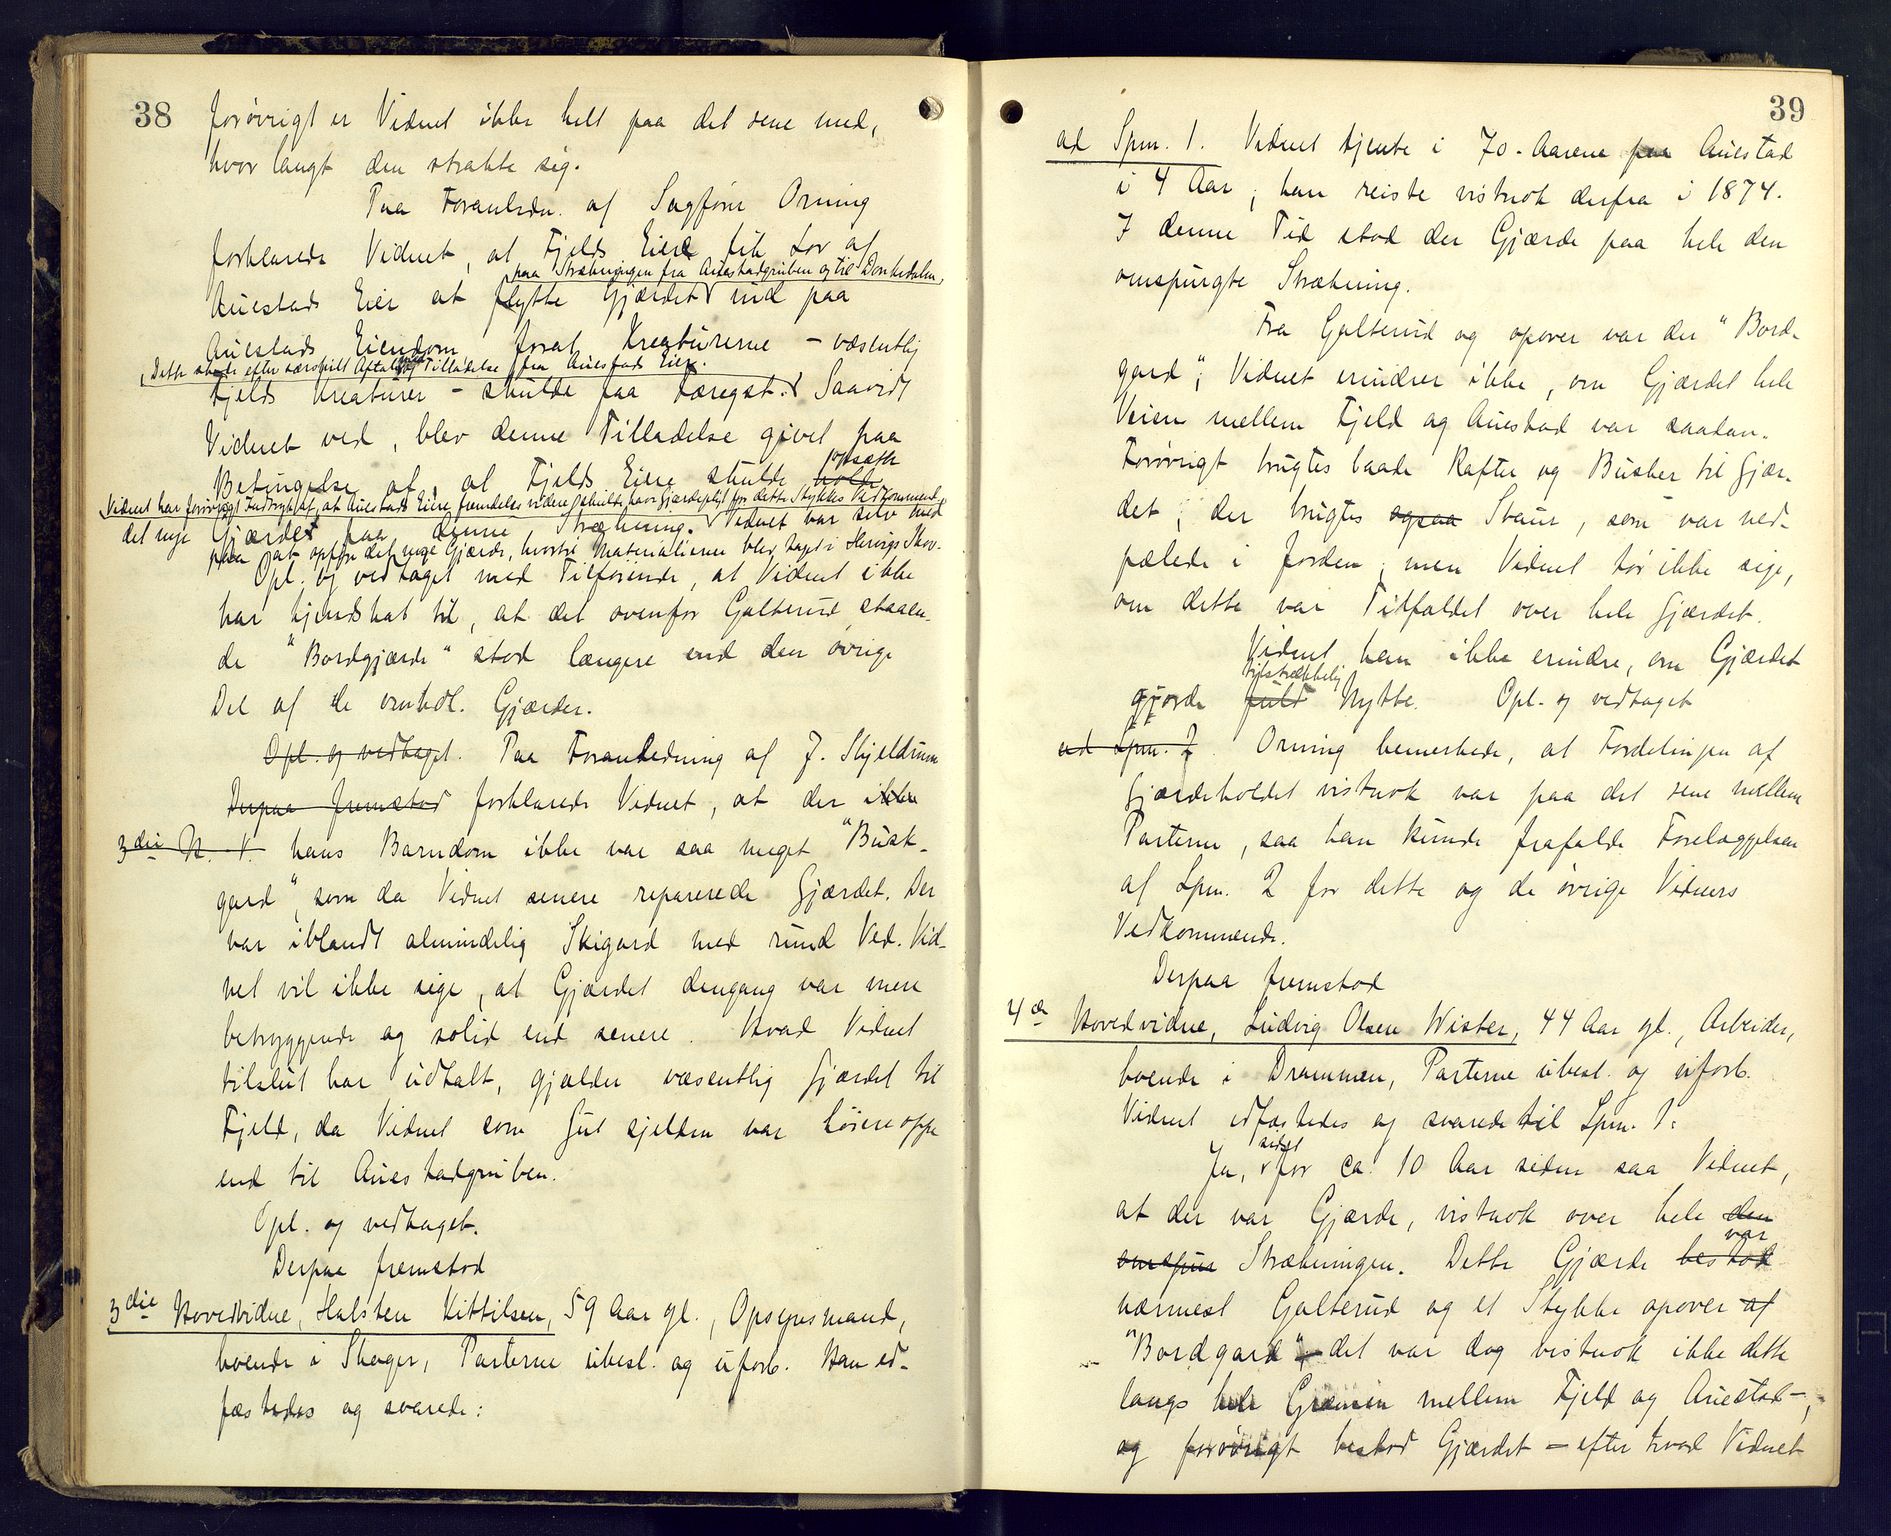 38
forøvrigt er Vidnet ikke helt paa det rene med,
hvor langt den strakte sig.
Paa Foranledn. af Sagfører Orning
forklarede Vidnet, at Fjelds Eiere fik Lov af
paa Strækningen fra Auestadgruben og til Donkedalen,
Auestads Eier at flytte Gjærdet ind paa
Auestads Eiendom forat Kreaturerne – væsentlig
Dette skede efter særskilt Aftale Tilladelse fra Auestads Eier.
Fjelds Kreaturer – skulde paa Læregst. Saavidt
Vidnet ved, blev denne Tilladelse givet paa
opsætte
Betingelse af, at Fjelds Eiere skulde holde
Vidnet har forøvrigt Indtryk af, at Auestads Eiere fremdeles videre skulde have Gjærdepligt for dette Stykkes Vedkommende.
det nye Gjærdet paa denne Strækning. Vidnet var selv med
paa at opføre det nye Gjærde, hvortil Materialierne blev taget i Skov.
Opl. og vedtaget med Tilføiende, at Vidnet ikke
har kjendskab til, at det ovenfor Galterud staaen-
de "Bordgjærde" stod længere end den øvrige
Del af de omhdl. Gjærder.
Opl. og vedtaget. Paa Foranledning af J. Skjeldrum
Derpaa fremstod forklarede Vidnet, at der ikke
3die H. V. hans Barndom ikke var saa meget "Busk-
gard", som da Vidnet senere reparerede Gjærdet. Der
var iblandt almindelig Skigard med rund Ved. Vid-
net vil ikke sige, at Gjærdet dengang var mere
betryggende og solid end senere. Hvad Vidnet
tilslut har udtalt, gjælder væsentlig Gjærdet til
Fjeld, da Vidnet som Gut sjelden var høiere oppe
end til Auestadgruben.
Opl. og vedtaget.
Derpaa fremstod
3die Hovedvidne, Halsten Kittilsen, 59 Aar gl., Opsynsmand,
boende i Skoger, Parterne ubesl. og uforb. Han ed-
fæstedes og svarede:
39
ad Spm. 1. Vidnet tjente i 70-Aarene paa Auestad
i 4 Aar; han reiste vistnok derfra i 1874.
I denne Tid stod der Gjærde paa hele den
omspurgte Strækning.
Fra Galterud og opover var der "Bord-
gard"; Vidnet erindrer ikke, om Gjærdet hele
Veien mellem Fjeld og Auestad var saadan.
Forøvrigt brugtes baade Rafter og Busker til Gjær-
det; der brugtes ogsaa Staur, som var ned-
pælede i Jorden; men Vidnet tør ikke sige,
om dette var Tilfældet over hele Gjærdet.
Vidnet kan ikke erindre, om Gjærdet
tilstrækkelig
gjorde fuld Nytte. Opl. og vedtaget
ad Spm. 2. Orning bemerkede, at Fordelingen af
Gjærdeholdet vistnok var paa det rene mellem
Parterne, saa han kunde frafalde Forelæggelsen
af Spm. 2 for dette og de øvrige Vidners
Vedkommende.
Derpaa fremstod
4de Hovedvidne, Ludvig Olsen Wister, 44 Aar gl., Arbeider,
boende i Drammen, Parterne ubesl. og uforb.
Vidnet edfæstedes og svarede til Spm. 1:
sidst
Ja, for ca. 10 Aar siden saa Vidnet,
at der var Gjærde, vistnok over hele den
var
omspur Strækningen. Dette Gjærde bestod
nærmest Galterud og et Stykke opover af
"Bordgard", – det var dog vistnok ikke dette
langs hele Grænsen mellem Fjeld og Auestad –,
og forøvrigt bestod Gjærdet – efter hvad Vidnet